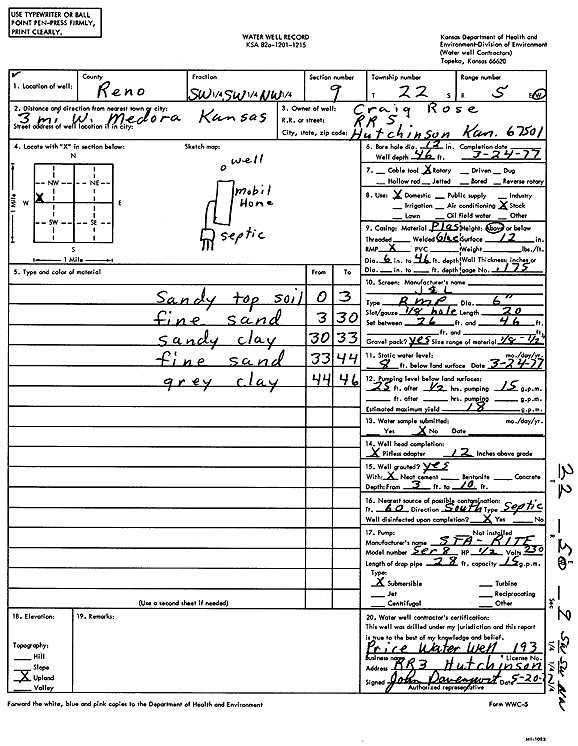 USE TYPEWRITER OR BALL
POINT PEN-PRESS FIRMLY,
PRINT CLEARLY.
WATER WELL RECORD
KSA 82a-1201-1215
Kansas Department of Health and
Environment-Division of Environment
(Water well Contractors)
Topeka, Kansas 66620
1. Location of well: County Reno Fraction SW 1/4 SW 1/4 NW 1/4 Section number 9 Township number T 22 S Range number R 5 E/W
2. Distance and direction from nearest town or city: 3 mi. W. Medora Kansas
Street address of well location if in city:
3. Owner of well: Craig Rose
R.R. or street: RR 5
City, state, zip code: Hutchinson Kan. 67501
4. Locate with "X" in section below:
N
NW NE
W X E
SW SE
S
1 Mile
1 Mile
Sketch map:
well
mobil
Home
septic
5. Type and color of material From To
Sandy top soil 0 3
fine sand 3 30
sandy clay 30 33
fine sand 33 44
grey clay 44 46
(Use a second sheet if needed)
6. Bore hole dia. 12 in. Completion date
Well depth 46 ft. 3-24-77
7. Cable tool X Rotary Driven Dug
Hollow rod Jetted Bored Reverse rotary
8. Use: X Domestic Public supply Industry
Irrigation Air conditioning X Stock
Lawn Oil field water Other
9. Casing: Material Plas Height: Above or below
Threaded Welded Glue Surface 12 in.
RMP X PVC Weight lbs./ft.
Dia. 6 in. to 46 ft. depth Wall Thickness: inches or
Dia. in. to ft. depth gage No. .175
10. Screen: Manufacturer's name
J&L
Type RMP Dia. 6"
Slot/gauze 1/8 hole Length 20
Set between 26 ft. and 46 ft.
ft. and ft.
Gravel pack? yes Size range of material 1/8-1/2"
11. Static water level: mo./day/yr.
8 ft. below land surface Date 3-24-77
12. Pumping level below land surfaces:
25 ft. after 1/2 hrs. pumping 15 g.p.m.
ft. after hrs. pumping g.p.m.
Estimated maximum yield 18 g.p.m.
13. Water sample submitted: mo./day/yr.
Yes X No Date
14. Well head completion:
X Pitless adapter 12 Inches above grade
15. Well grouted? yes
With: X Neat cement Bentonite Concrete
Depth: From 3 ft. to 10 ft.
16. Nearest source of possible contamination:
ft. 60 Direction South Type Septic
Well disinfected upon completion? X Yes No
17. Pump: Not installed
Manufacturer's name STA-RITE
Model number Ser 8 HP 1/2 Volts 230
Length of drop pipe 28 ft. capacity 15 g.p.m.
Type:
X Submersible Turbine
Jet Reciprocating
Centrifugal Other
18. Elevation:
Topography:
Hill
Slope
X Upland
Valley
19. Remarks:
20. Water well contractor's certification:
This well was drilled under my jurisdiction and this report
is true to the best of my knowledge and belief.
Price Water Well 193
Business name License No.
Address RR3 Hutchinson
Signed John Davenport Date 5-20-77
Authorized representative
Forward the white, blue and pink copies to the Department of Health and Environment
Form WWC-5